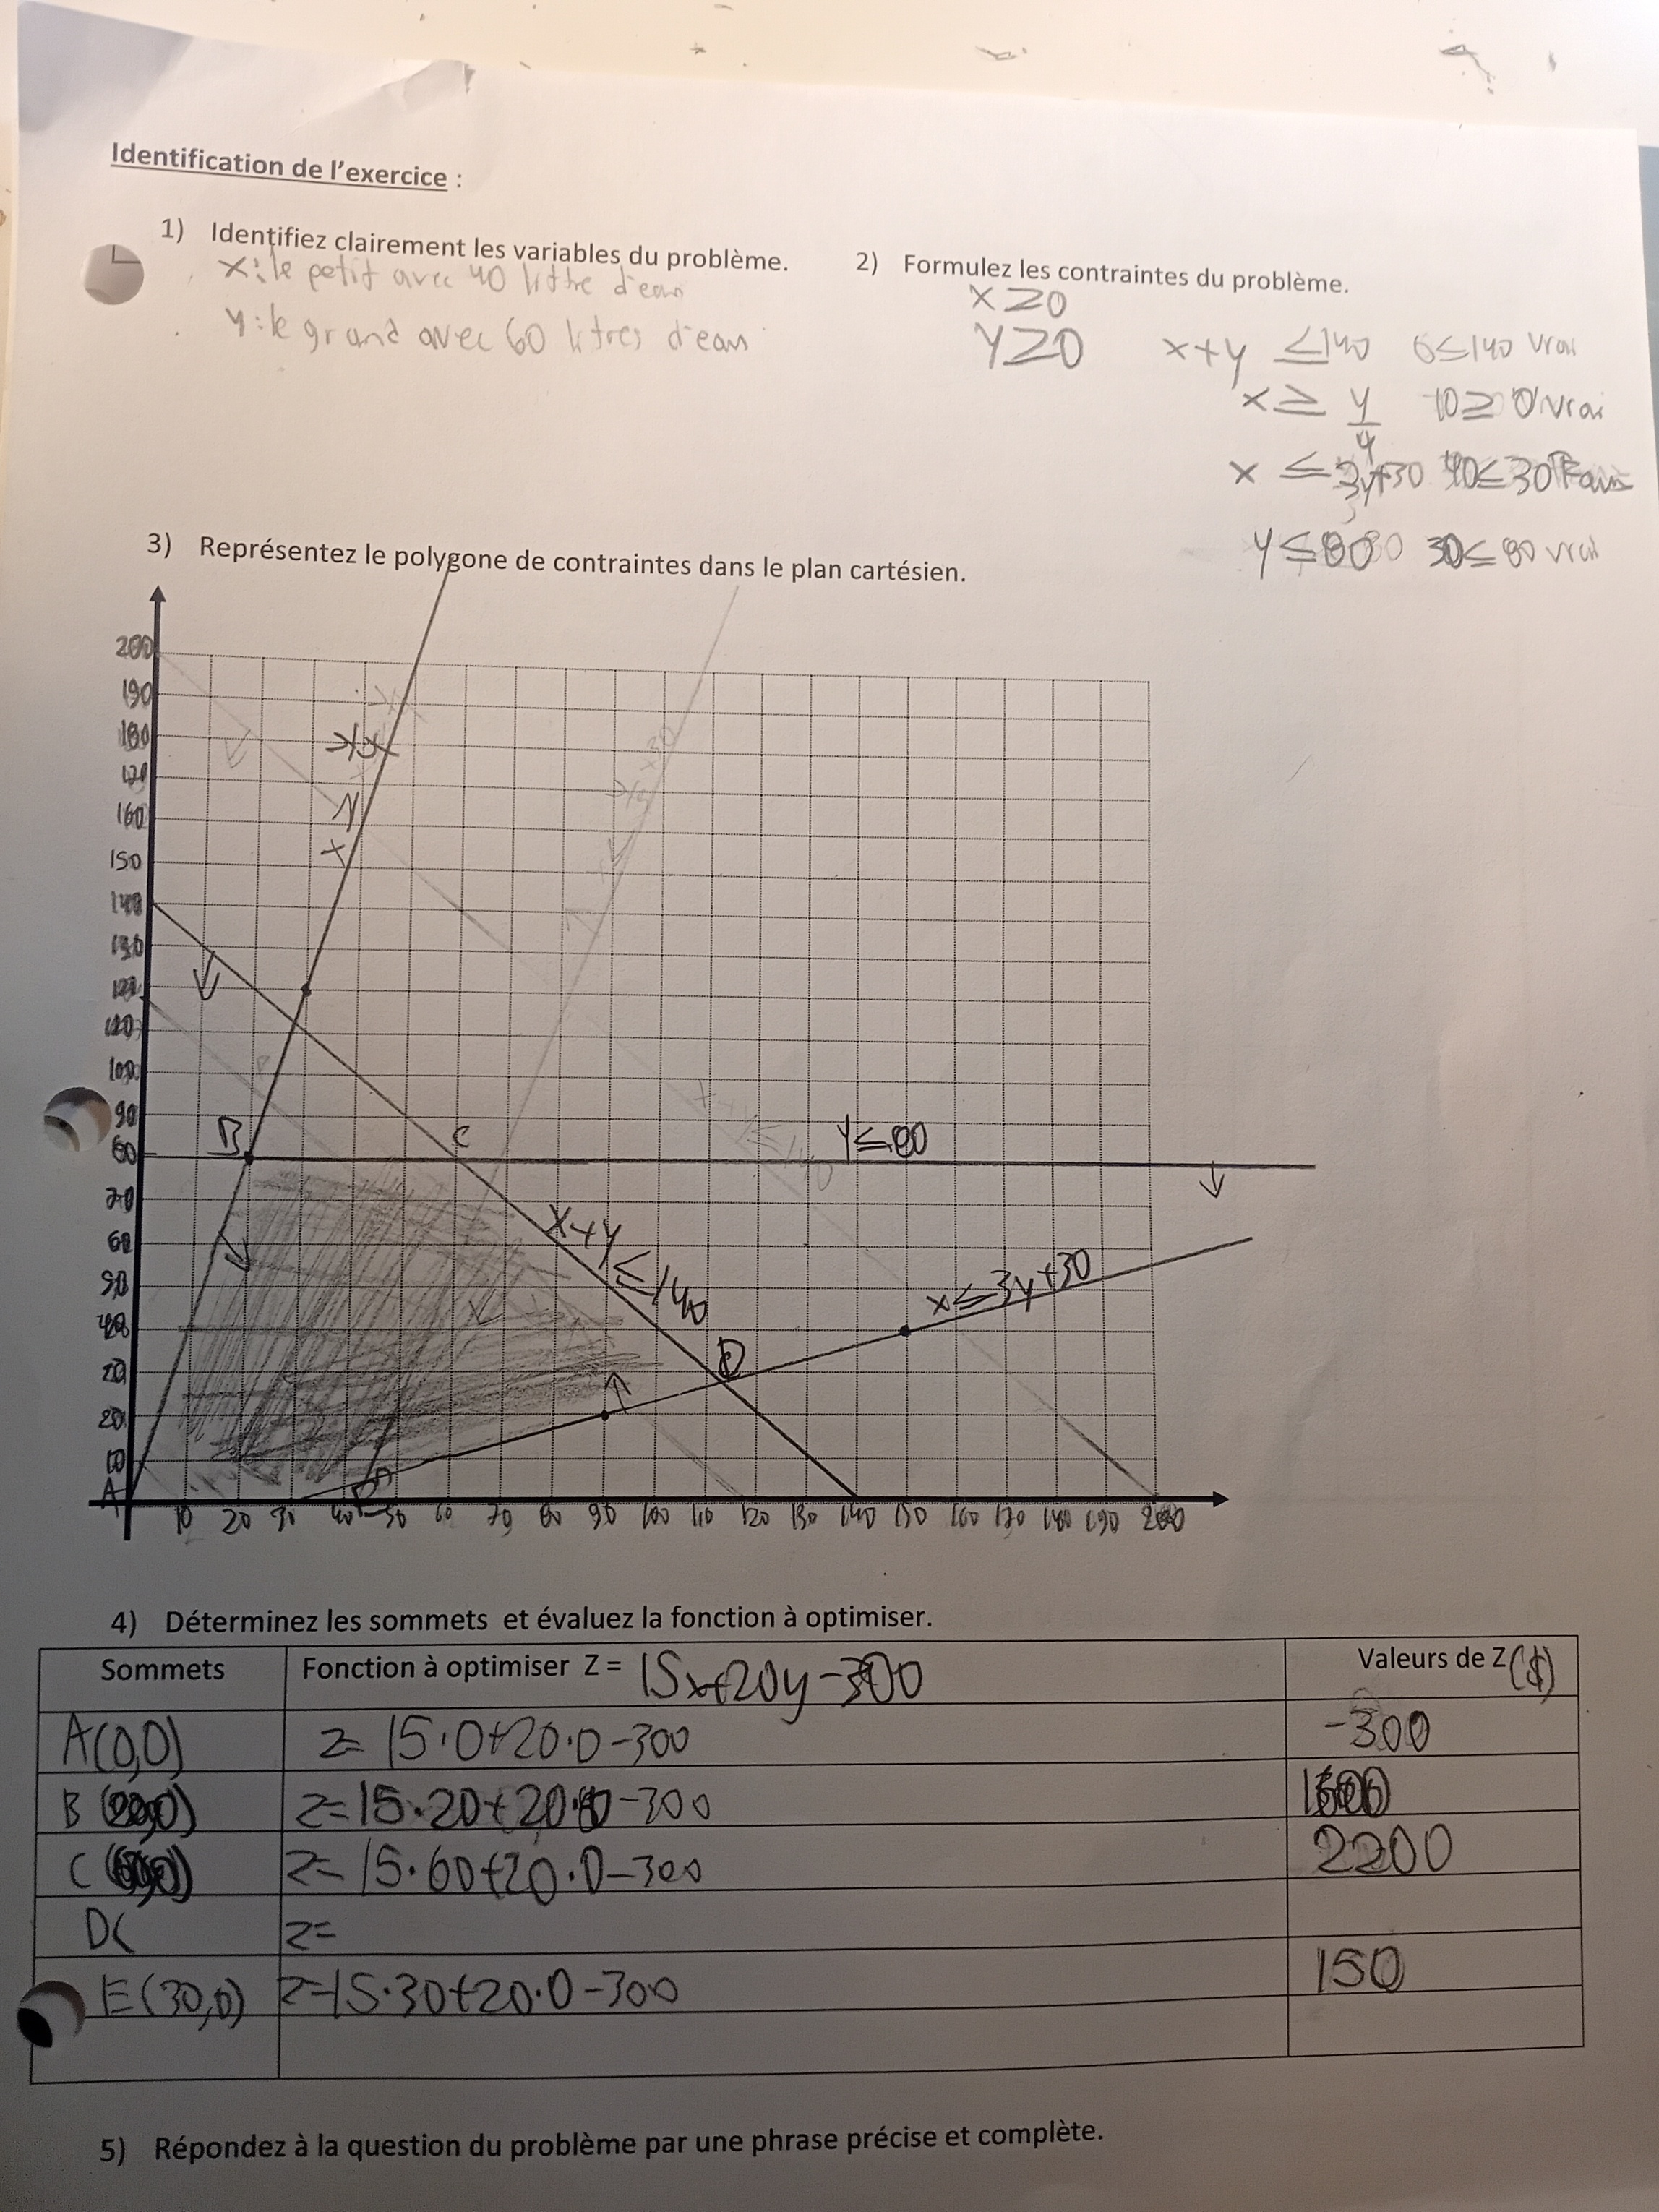 Identification de l'exercice :
1) Identifiez clairement les variables du problème.
x : le petit avec 40 littre d'eau
y : le grand avec 60 litres d'eau
2) Formulez les contraintes du problème.
x ≥ 0
y ≥ 0
x+y ≤ 140 0 ≤ 140 vrai
x ≥ y/4 10 ≥ 0 vrai
x ≤ 3y+30 40 ≤ 30 Faux
y ≤ 80 30 ≤ 80 vrai
3) Représentez le polygone de contraintes dans le plan cartésien.
200
190
180
170
160
150
140
130
100
90
80
70
60
40
20
10
A
B
C
D
y ≤ 80
x+y ≤ 140
x ≤ 3y+30
10 20 30 40 50 60 70 80 90 100 110 120 130 140 150 160 170 180 190 200
4) Déterminez les sommets et évaluez la fonction à optimiser.
Sommets Fonction à optimiser Z = 15x+20y-300 Valeurs de Z ($)
A(0,0) z= 15·0+20·0-300 -300
B z=15·20+20·80-300
C z=15·60+20·0-300 2200
D( z=
E(30,0) z=15·30+20·0-300 150
5) Répondez à la question du problème par une phrase précise et complète.